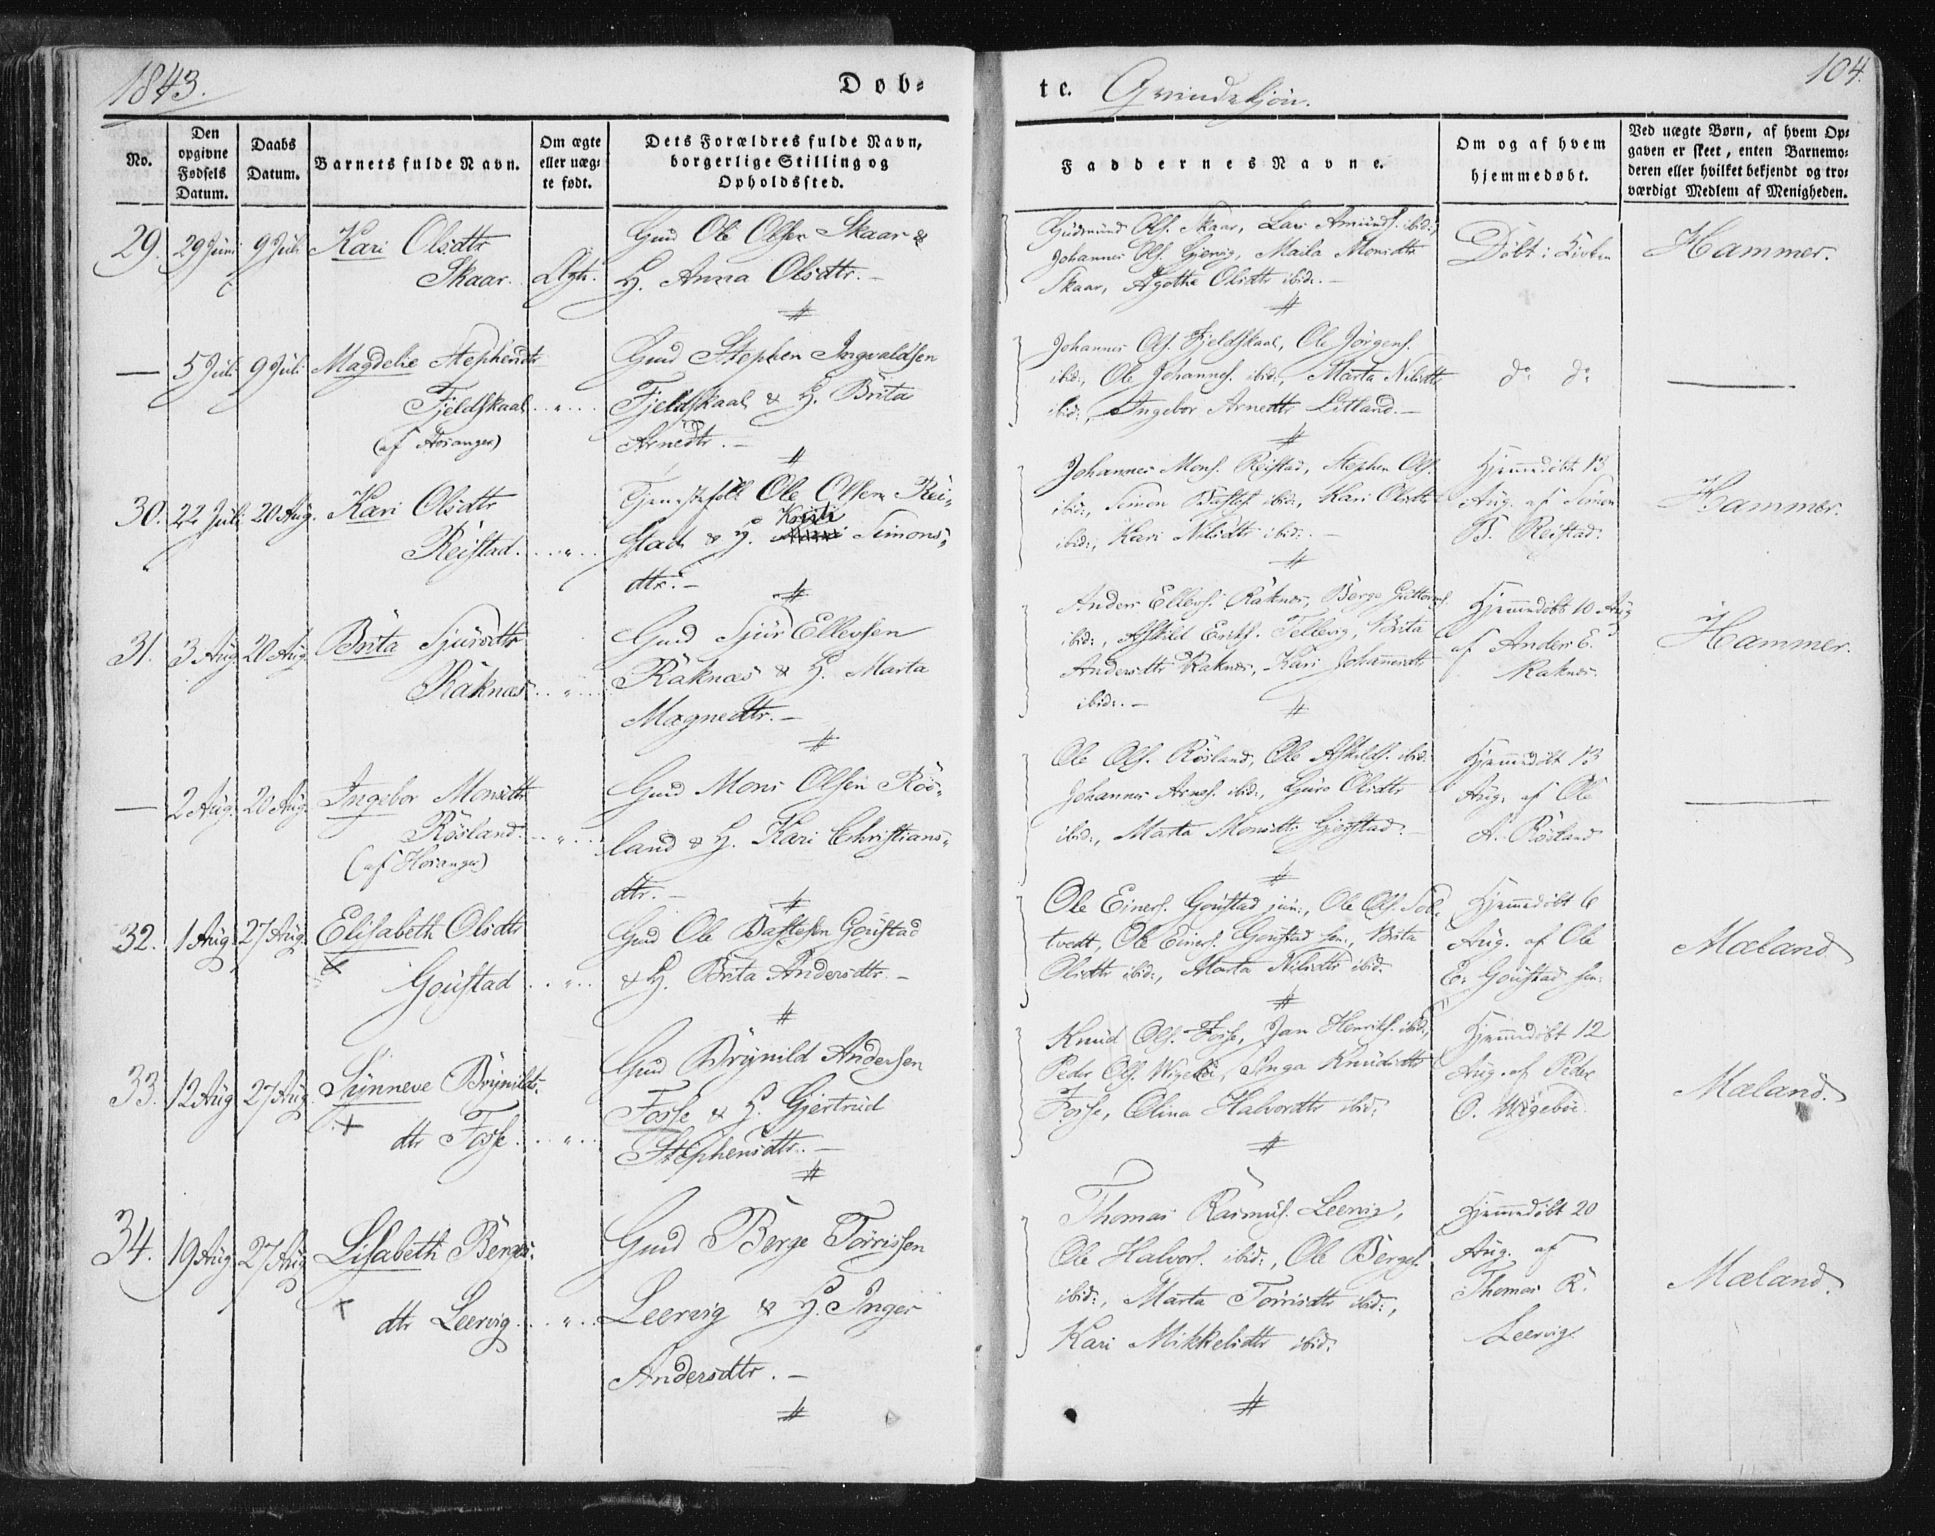 1843.
Døb-
te.
Qvindekjön.
104.
No.
Den opgivne Fødsels Datum.
Daabs Datum.
Barnets fulde Navn.
Om ægte eller uæg-te født.
Dets Forældres fulde Navn, borgerlige Stilling og Opholdssted.
Faddernes Navne.
Om og af hvem hjemmedøbt.
Ved uægte Børn, af hvem Op-gaven er skeet, enten Barnemo-deren eller hvilket bekjendt og tro-værdigt Medlem af Menigheden.
29. 29 Juni 9 Juli Kari Olsdtr
Skaar. Ægte.
Gmd Ole Olsen Skaar &
H. Anna Olsdtr. –
Gudmund Ols. Skaar, Lars Amunds. ibid:,
Johannes Ols. Gjervig, Maila Monsdtr
Skaar, Agotha Olsdtr ibid:. –
Döbt i Kirken
Hammer.
— 5 Juli 9 Juli Magdele Stephensdtr
Fjeldskaal . . " . .
(af Hosanger)
Gmd Stephen Ingvaldsen
Fjeldskaal & H. Brita
Arnedtr. –
Johannes Ols. Fjeldskaal, Ole Jörgens.
ibid:, Ole Johannes. ibid:, Marta Nilsdtr
ibid:, Ingebor Arnedtr Litland. –
do do
—
30. 22 Juli 20 Aug. Kari Olsdtr
Reistad. . . " . .
Tjenestefolk Ole Olsen Rei-
Kristi
stad & H. Simons-
dtr. –
Johannes Mons. Reistad, Stephen Ols.
ibid:, Simon Bastes. ibid:, Kari Olsdtr
ibid:, Kari Nilsdtr ibid:. –
Hjemmedöbt 13
Aug. af Simon
B. Reistad.
Hammer.
31. 3 Aug 20 Aug. Brita Sjursdtr
Raknæs. . . " . .
Gmd Sjur Ellevsen
Raknæs & H. Marta
Magnedtr. –
Anders Ellevs. Raknes, Börge Guttorms.
ibid:, Askild Ericks. Tellevig, Brita
Andersdtr Raknes, Kari Johannesdtr
ibid:. –
Hjemmedöbt 10 Aug
af Anders E.
Raknes.
Hammer.
— 2 Aug. 20 Aug. Ingebor Monsdtr
Rösland. . . " . .
(af Hosanger)
Gmd Mons Olsen Rös-
land & H. Kari Christians-
dtr. –
Ole Ols. Rösland, Ole Askilds. ibid:
Johannes Arnes. ibid:, Guro Olsdtr
ibid:, Marta Monsdtr Gjerstad. –
Hjemmedöbt 13
Aug. af Ole
A. Rösland
—
32. 1 Aug. 27 Aug. Elisabeth Olsdtr
Goustad . . " . .
Gmd Ole Bastesen Goustad
& H. Brita Andersdtr. –
Ole Einers. Goustad jun:, Ole Ols. Sol-
tvedt, Ole Einers. Goustad sen:, Brita
Olsdtr ibid:, Marta Nilsdtr ibid:
Hjemmedöbt 6
Aug. af Ole
E. Goustad sen:
Mæland.
33. 12 Aug 27 Aug. Synneve Brynilds-
dtr Fosse. . . " . .
Gmd Brynild Andersen
Fosse & H. Gjertrud
Stephensdtr. –
Knud Ols. Fosse, Jan Henriks. ibid:,
Peder Ols. Wigebö, Inga Knudsdtr
Fosse, Olina Halvordtr ibid:
Hjemmedöbt 12
Aug. af Peder
O. Wigeböe
Mæland.
34. 19 Aug 27 Aug Lisabeth Berges-
dtr Leervig. . . " . .
Gmd Berge Torrissen
Leervig & H. Inger
Andersdtr. –
Thomas Rasmus. Leervig,
Ole Halvors. ibid:, Ole Berges.
ibid:, Marta Torrisdtr ibid:,
Kari Mikkelsdtr ibid:
Hjemmedöbt 20
Aug. af
Thomas R.
Leervig.
Mæland.